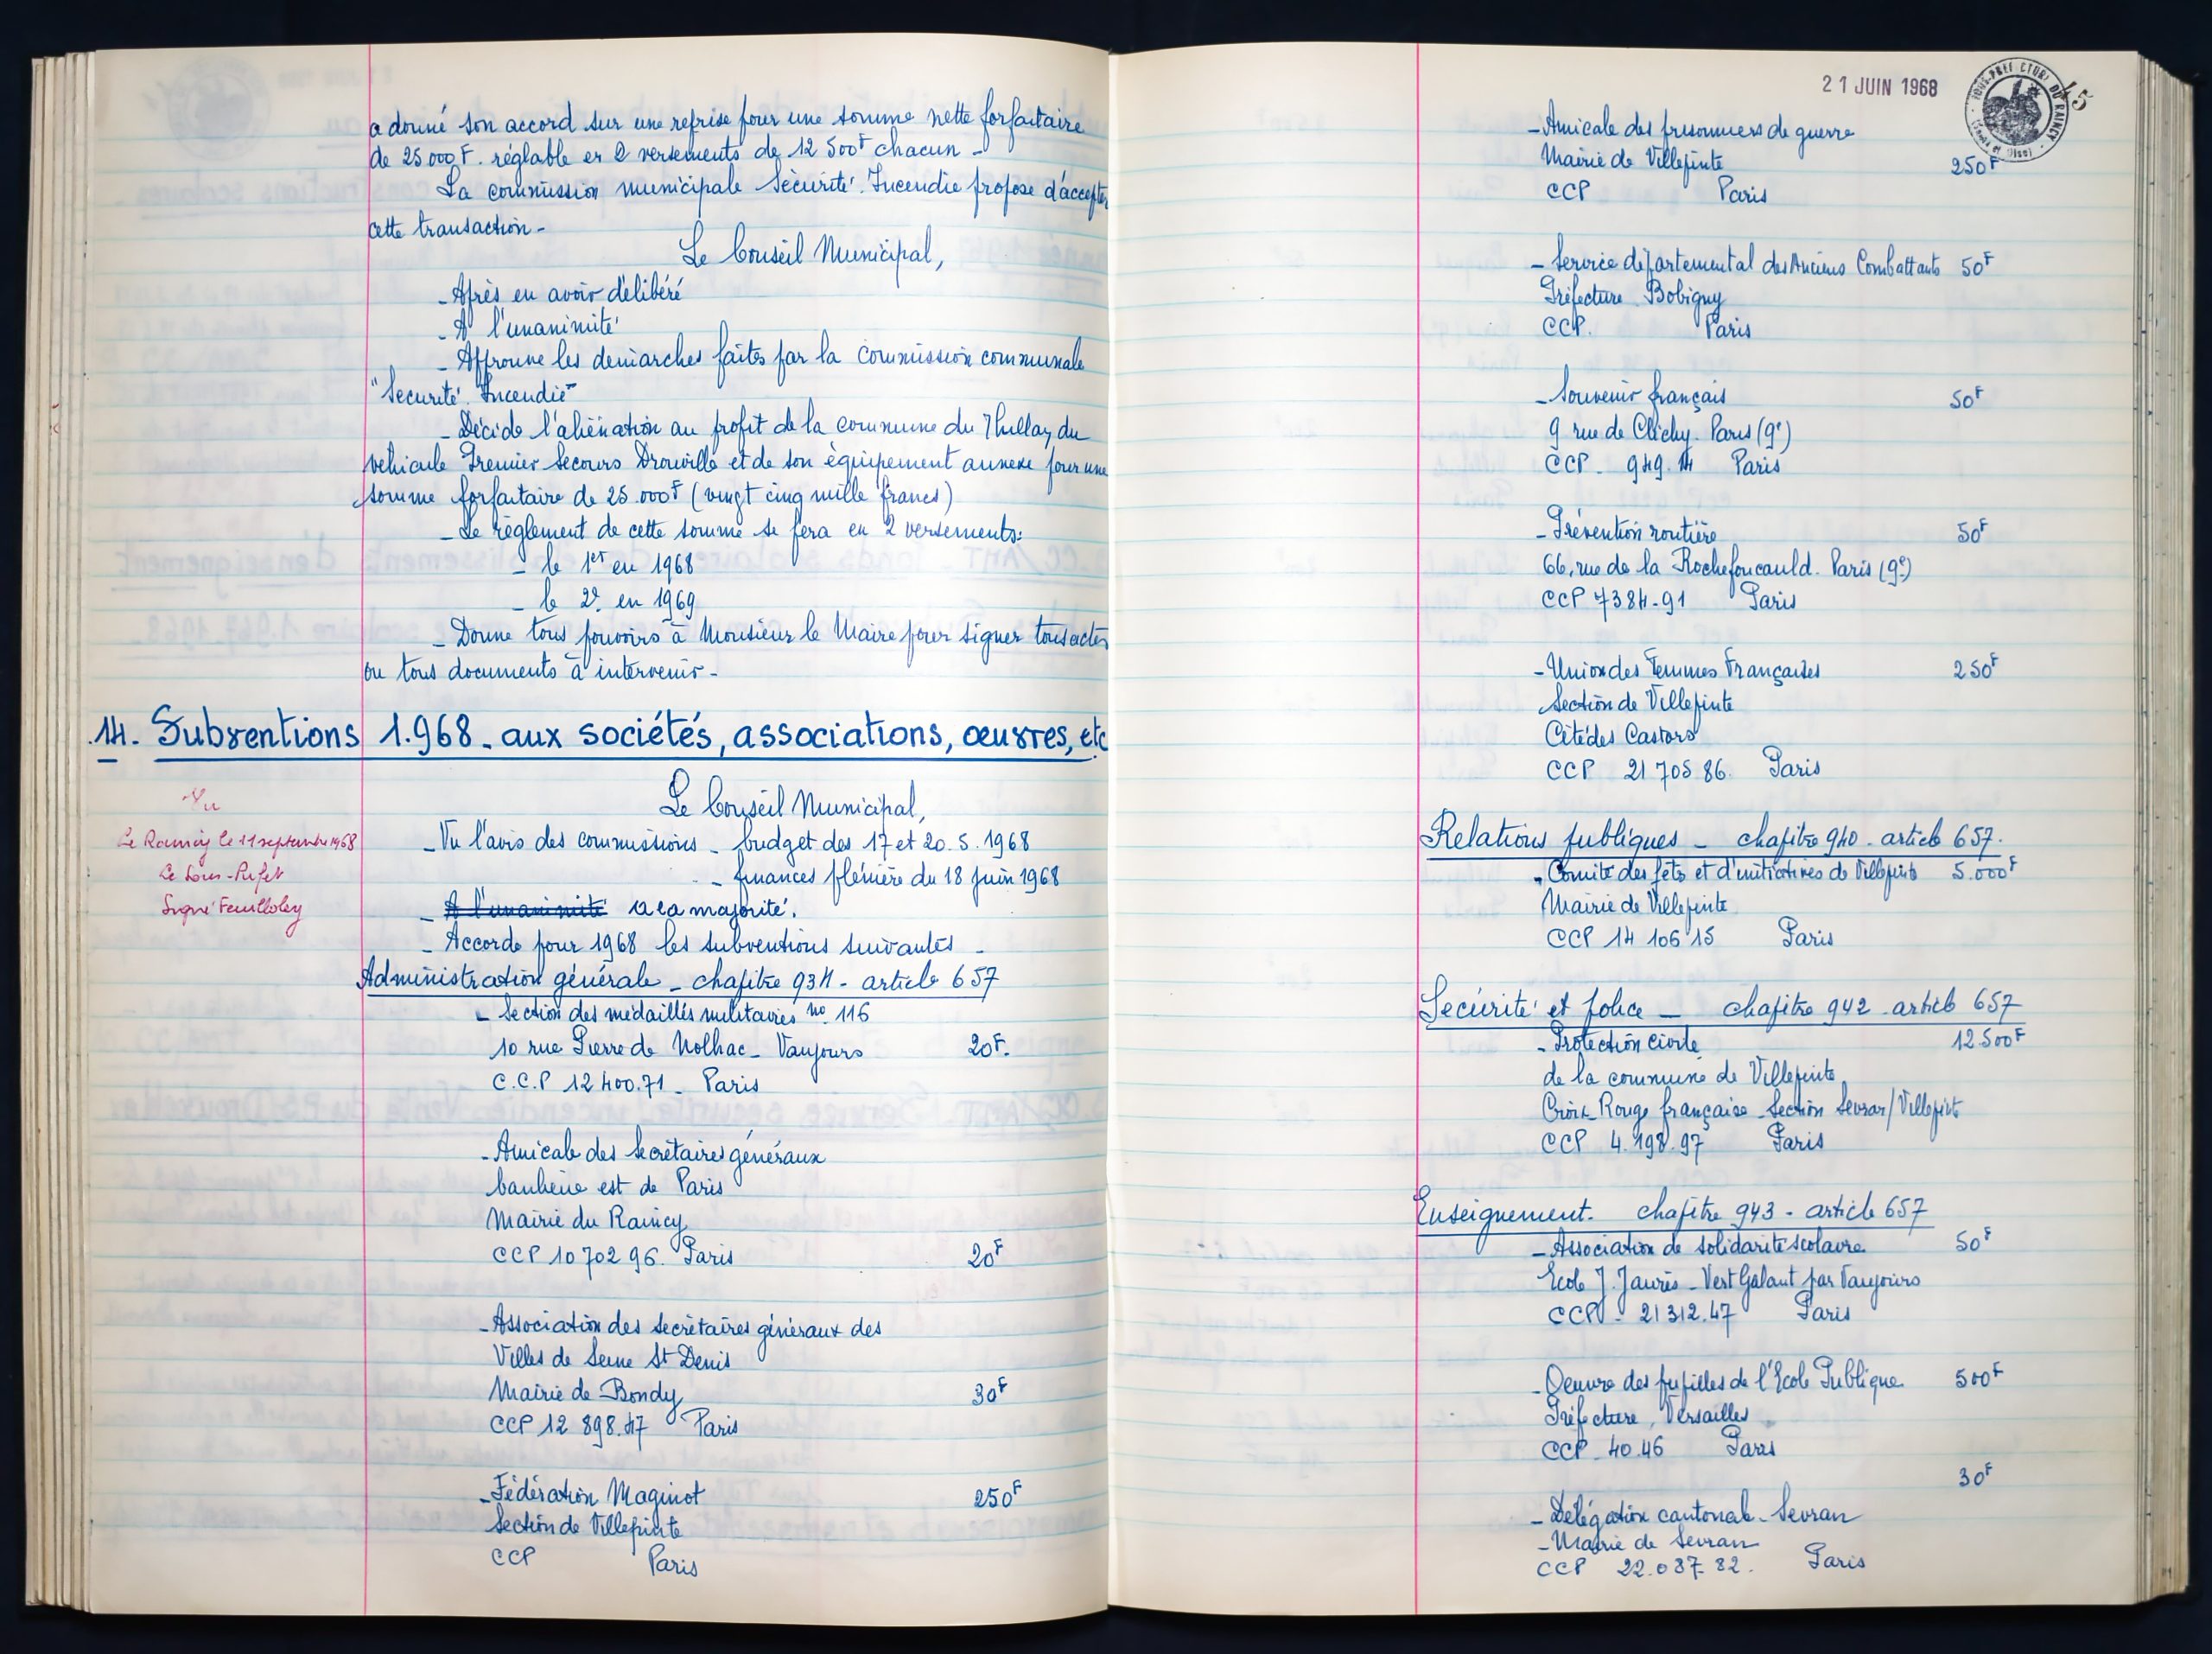 a donné son accord sur une reprise pour une somme nette forfaitaire
de 25 000 F. réglable en 2 versements de 12 500F chacun -
La commission municipale Sécurité. Incendie propose d'accepter
cette transaction -
Le Conseil Municipal,
- Après en avoir délibéré
- A l'unanimité
- Approuve les démarches faites par la commission communale
"Sécurité. Incendie"
- Décide l'aliénation au profit de la commune du Thillay du
véhicule Premier Secours Drouville et de son équipement annexe pour une
somme forfaitaire de 25.000F (vingt cinq mille francs)
- Le règlement de cette somme se fera en 2 versements:
- le 1er en 1968
- le 2e en 1969
- Donne tous pouvoirs à Monsieur le Maire pour signer tous actes
ou tous documents à intervenir -
14. Subventions 1.968 - aux sociétés, associations, œuvres, etc
Vu
Le Raincy le 11 septembre 1968
Le Sous-Préfet
Signé
Le Conseil Municipal,
- Vu l'avis des commissions - budget des 17 et 20.5.1968
- finances plénière du 18 juin 1968
- A l'unanimité à la majorité.
- Accorde pour 1968 les subventions suivantes -
Administration générale - chapitre 934 - article 657
- Section des médaillés militaires no 116
10 rue Pierre de Nolhac - Vaujours 20F.
C.C.P 12400.71 - Paris
- Amicale des secrétaires généraux
banlieue est de Paris
Mairie du Raincy
CCP 10 702 96. Paris 20F
- Association des secrétaires généraux des
Villes de Seine St Denis
Mairie de Bondy 30F
CCP 12 898.47 Paris
- Fédération Maginot 250F
Section de Villepinte
CCP Paris
21 JUIN 1968
SOUS-PREFECTURE DU RAINCY
(Seine et Oise)
45
- Amicale des prisonniers de guerre
Mairie de Villepinte 250F
CCP Paris
- Service départemental des Anciens Combattants 50F
Préfecture Bobigny
CCP. Paris
- Souvenir français 50F
9 rue de Clichy. Paris (9e)
CCP - 949.14 Paris
- Prévention routière 50F
66, rue de la Rochefoucauld. Paris (9e)
CCP 7384-91 Paris
- Union des Femmes Françaises 250F
Section de Villepinte
Cité des Castors
CCP 21 705 86. Paris
Relations publiques - chapitre 940 - article 657.
- Comité des fêtes et d'initiatives de Villepinte 5.000F
Mairie de Villepinte
CCP 14 106 15 Paris
Sécurité et police - chapitre 942 - article 657
- Protection civile 12.500F
de la commune de Villepinte
Croix Rouge française - Section Sevran/Villepinte
CCP 4.198.97 Paris
Enseignement. chapitre 943 - article 657
- Association de solidarité scolaire 50F
Ecole J. Jaurès - Vert Galant par Vaujours
CCP - 21312.47 Paris
- Oeuvre des pupilles de l'Ecole Publique 500F
Préfecture, Versailles
CCP - 40.46 Paris
30F
- Délégation cantonale - Sevran
- Mairie de Sevran
CCP 22.037 82. Paris